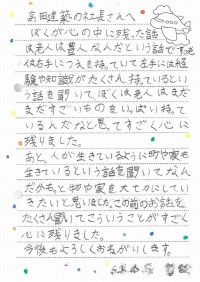 高田建築の社長さんへ
ぼくが心の中に残った話
は老人は豊んなんだという話です
右手につえを持っていて左手には経
験や知識がたくさん持っているとい
う話を聞いてぼくは老人はまだ
まだすごいものをいっぱい持って
いるんだなと思ってすごく心に
残りました。
あと、人が生きているように町や家も
生きているという話を聞いてなん
だかもっと物や家を大切にしてい
きたいと思いました。この前のお話を
たくさん聞いてこういうことがすごく
心に残りました。
今後もよろしくおねがいします。